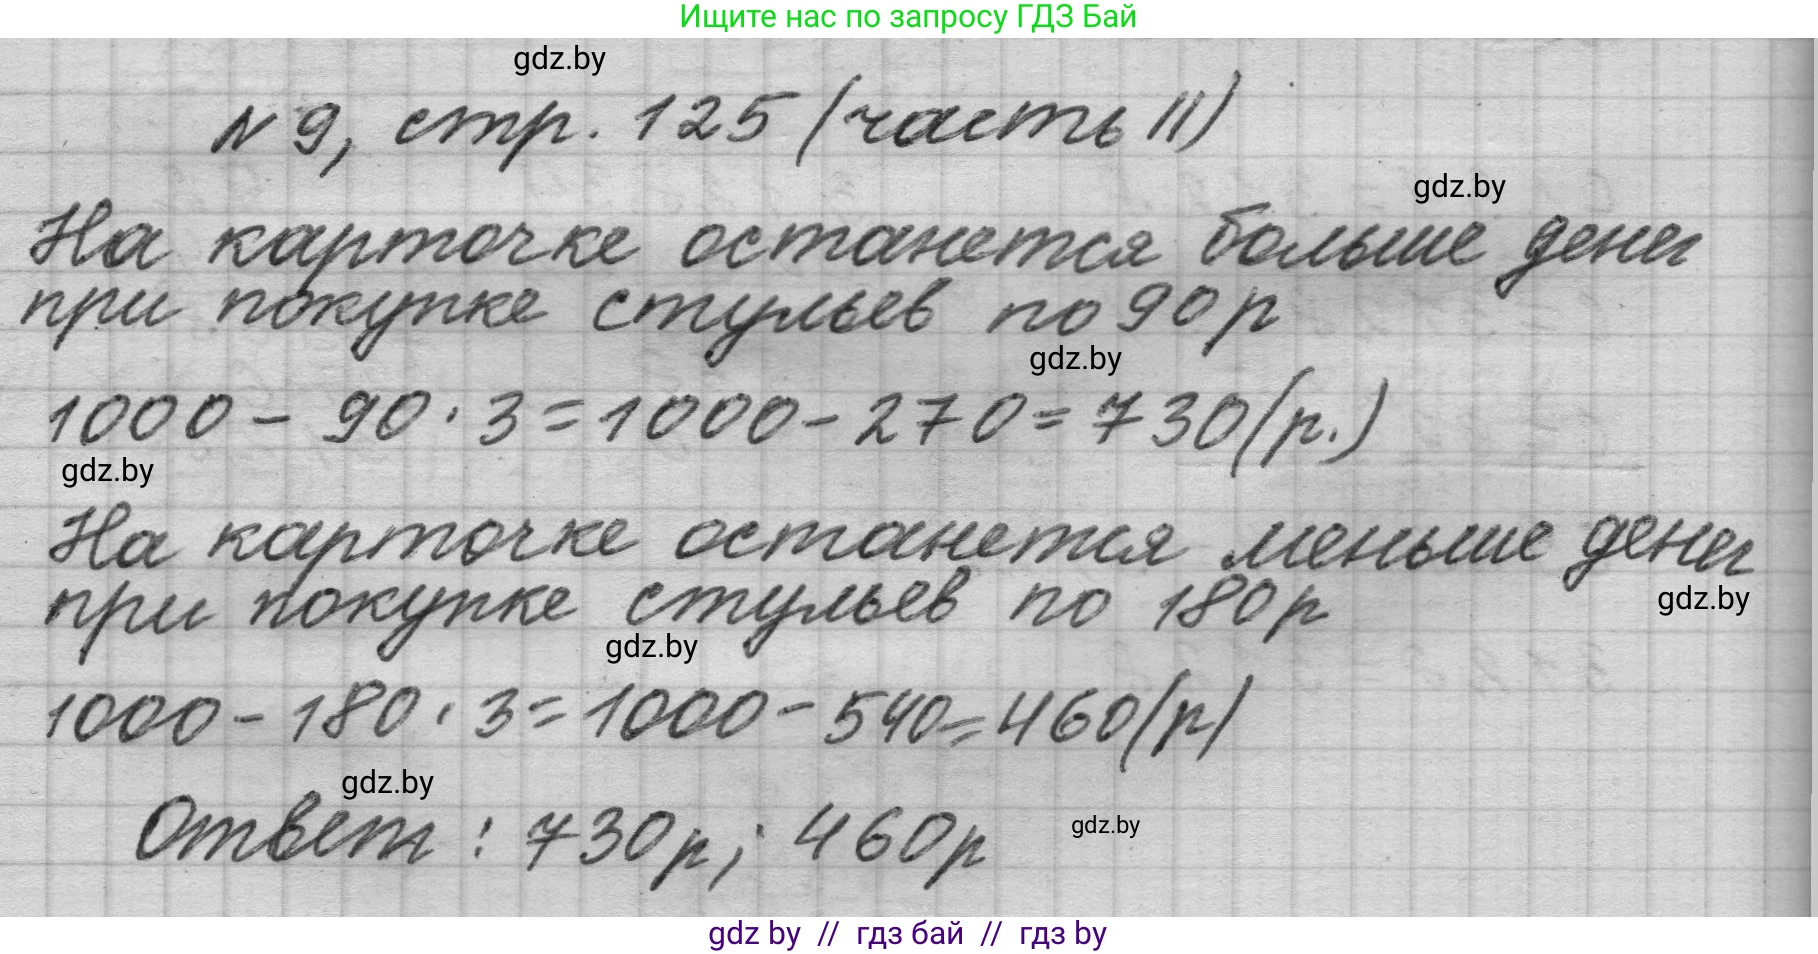 Ищите нас по запросу ГДЗ Бай
gdz.by
№ 9, стр. 125 (часть II)
gdz.by
На карточке останется больше денег
при покупке стульев по 90 р
gdz.by
1000 - 90 · 3 = 1000 - 270 = 730 (р.)
gdz.by
На карточке останется меньше денег
при покупке стульев по 180 р
gdz.by
gdz.by
1000 - 180 · 3 = 1000 - 540 = 460 (р)
gdz.by
Ответ : 730 р ; 460 р
gdz.by
gdz by // гдз бай // гдз by